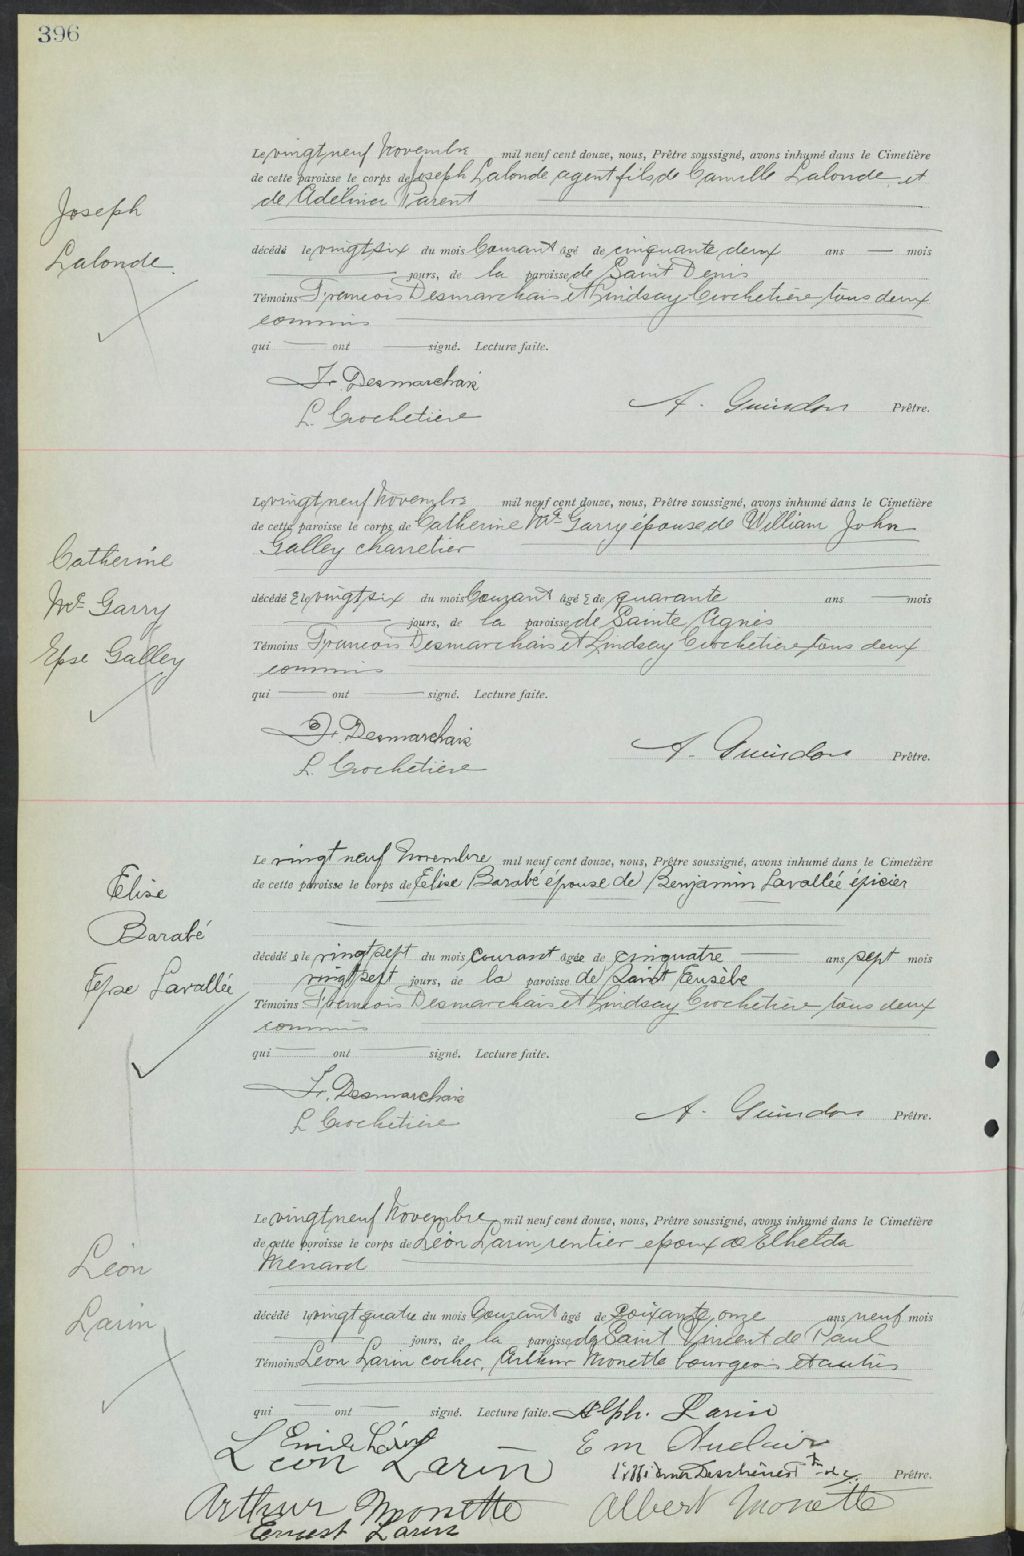 396
Joseph
Lalonde
Le vingt neuf Novembre mil neuf cent douze, nous, Prêtre soussigné, avons inhumé dans le Cimetière
de cette paroisse le corps de Joseph Lalonde agent fils de Camille Lalonde et
de Adélina Parent
décédé le vingt six du mois Courant âgé de cinquante deux ans — mois
— jours, de la paroisse de Saint Denis
Témoins Francois Desmarchais et Lindsay Crochetière tous deux
commis
qui — ont — signé. Lecture faite.
Fr. Desmarchais
L. Crochetiere
A. Guindon Prêtre.
Catherine
Mc Garry
Epse Galley
Le vingt neuf Novembre mil neuf cent douze, nous, Prêtre soussigné, avons inhumé dans le Cimetière
de cette paroisse le corps de Catherine Mc Garry épouse de William John
Galley charretier
décédé e le vingt six du mois Courant âgé e de quarante ans — mois
— jours, de la paroisse de Sainte Agnès
Témoins Francois Desmarchais et Lindsay Crochetiere tous deux
commis
qui — ont — signé. Lecture faite.
Fr. Desmarchais
L. Crochetiere
A. Guindon Prêtre.
Elise
Barabé
Epse Lavallée
Le vingt neuf Novembre mil neuf cent douze, nous, Prêtre soussigné, avons inhumé dans le Cimetière
de cette paroisse le corps de Elise Barabé épouse de Benjamin Lavallée épicier
décédé e le vingt sept du mois courant âgée de cinquatre — ans sept mois
vingt sept jours, de la paroisse de Saint Eusèbe
Témoins Francois Desmarchais et Lindsay Crochetière tous deux
commis
qui — ont — signé. Lecture faite.
Fr. Desmarchais
L Crochetière
A. Guindon Prêtre.
Léon
Larin
Le vingt neuf Novembre mil neuf cent douze, nous, Prêtre soussigné, avons inhumé dans le Cimetière
de cette paroisse le corps de Léon Larin rentier epoux de Elhelda
Menard
décédé le vingt quatre du mois Courant âgé de soixante onze ans neuf mois
— jours, de la paroisse de Saint Vincent de Paul
Témoins Leon Larin cocher, Arthur Monette bourgeois et autres
qui — ont — signé. Lecture faite. Alph. Larin
Emile Larin
E M Auclair
Leon Larin
Deschenes Prêtre.
Arthur Monette
Albert Monette
Ernest Larin